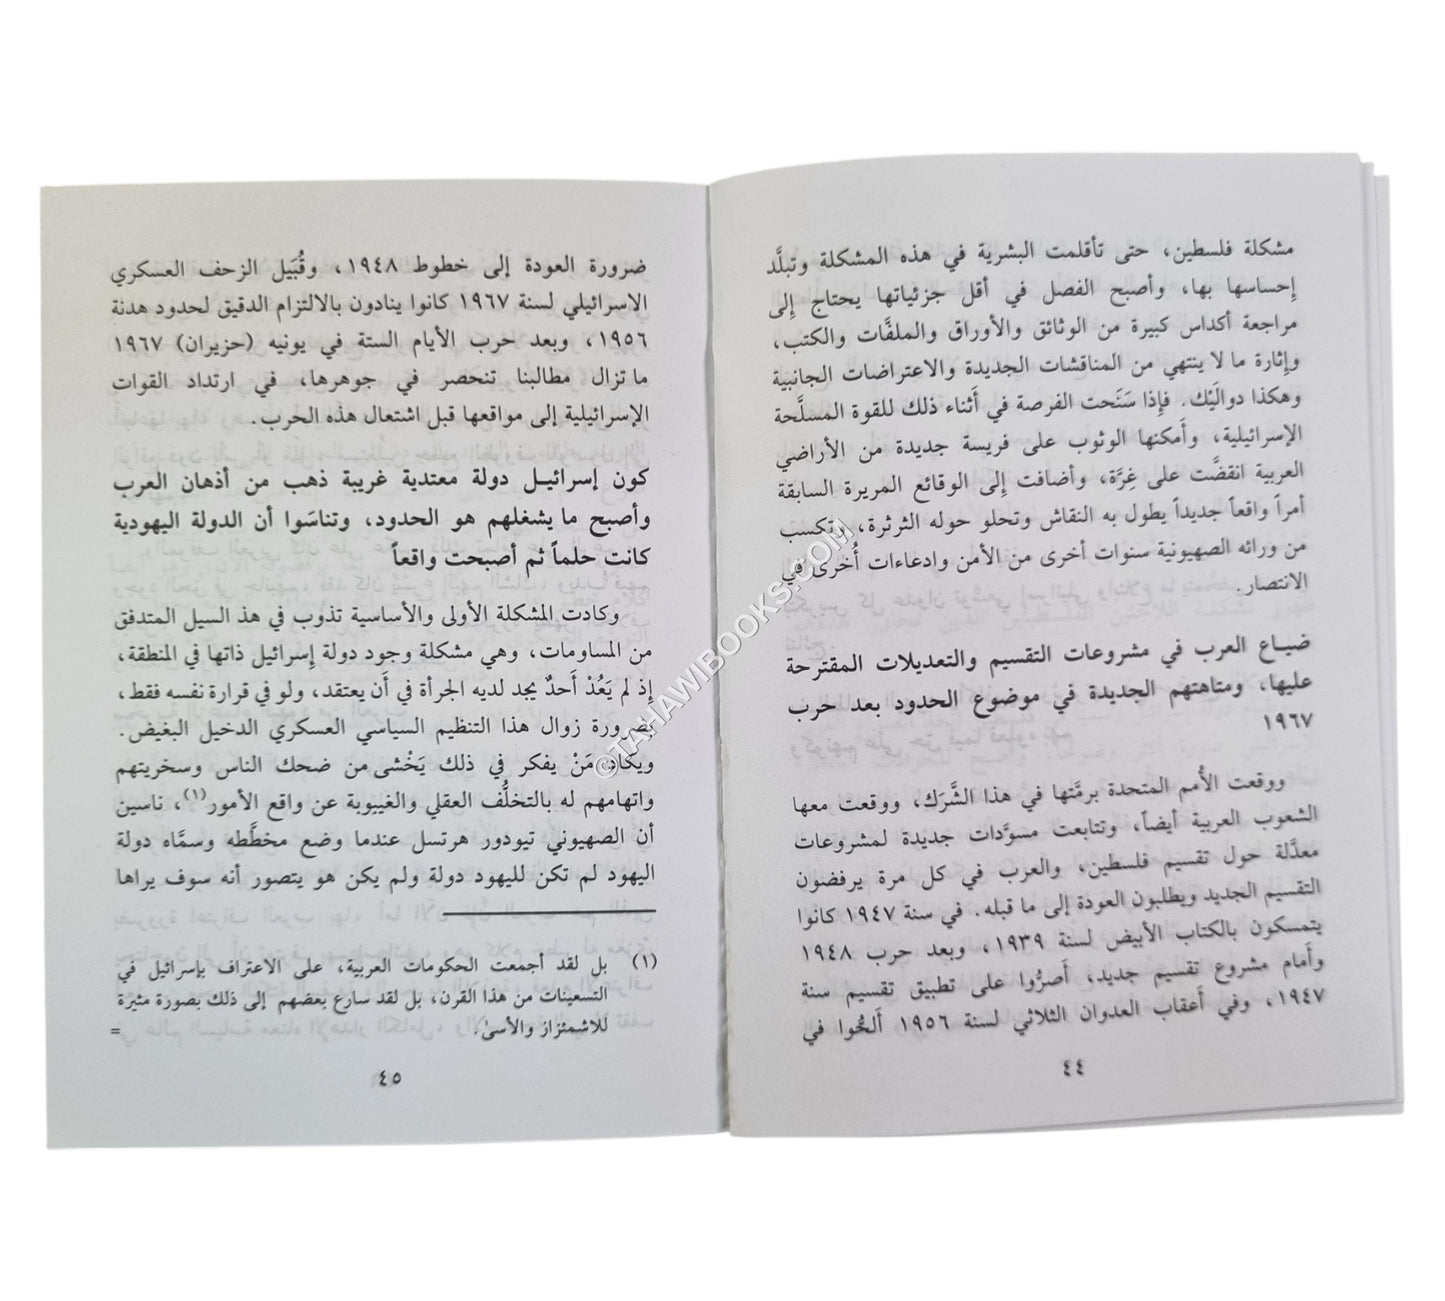 مشكلة فلسطين، حتى تأقلمت البشرية في هذه المشكلة وتبلَّد
إحساسها بها، وأصبح الفصل في أقل جزئياتها يحتاج إلى
مراجعة أكداس كبيرة من الوثائق والأوراق والملفَّات والكتب،
وإثارة ما لا ينتهي من المناقشات الجديدة والاعتراضات الجانبية
وهكذا دوالَيْك. فإذا سَنَحت الفرصة في أثناء ذلك للقوة المسلَّحة
الإسرائيلية، وأمكنها الوثوب على فريسة جديدة من الأراضي
العربية انقضَّت على غِرَّة، وأضافت إلى الوقائع المريرة السابقة
أمراً واقعاً جديداً يطول به النقاش وتحلو حوله الثرثرة، وتكسب
من ورائه الصهيونية سنوات أخرى من الأمن وادعاءات أُخرى في
الانتصار.
ضياع العرب في مشروعات التقسيم والتعديلات المقترحة
عليها، ومتاهتهم الجديدة في موضوع الحدود بعد حرب
١٩٦٧
ووقعت الأُمم المتحدة برمَّتها في هذا الشَّرَك، ووقعت معها
الشعوب العربية أيضاً، وتتابعت مسوَّدات جديدة لمشروعات
معدَّلة حول تقسيم فلسطين، والعرب في كل مرة يرفضون
التقسيم الجديد ويطلبون العودة إلى ما قبله. في سنة ١٩٤٧ كانوا
يتمسكون بالكتاب الأبيض لسنة ١٩٣٩، وبعد حرب ١٩٤٨
وأمام مشروع تقسيم جديد، أَصرُّوا على تطبيق تقسيم سنة
١٩٤٧، وفي أعقاب العدوان الثلاثي لسنة ١٩٥٦ أَلحُّوا في
٤٤
ضرورة العودة إلى خطوط ١٩٤٨، وقُبَيل الزحف العسكري
الاسرائيلي لسنة ١٩٦٧ كانوا ينادون بالالتزام الدقيق لحدود هدنة
١٩٥٦، وبعد حرب الأيام الستة في يونيه (حزيران) ١٩٦٧
ما تزال مطالبنا تنحصر في جوهرها، في ارتداد القوات
الإسرائيلية إلى مواقعها قبل اشتعال هذه الحرب.
كون إسرائيل دولة معتدية غريبة ذهب من أذهان العرب
وأصبح ما يشغلهم هو الحدود، وتناسَوا أن الدولة اليهودية
كانت حلماً ثم أصبحت واقعاً
وكادت المشكلة الأولى والأساسية تذوب في هذ السيل المتدفق
من المساومات، وهي مشكلة وجود دولة إسرائيل ذاتها في المنطقة،
إذ لم يَعُدْ أَحدٌ يجد لديه الجرأة في أَن يعتقد، ولو في قرارة نفسه فقط،
بضرورة زوال هذا التنظيم السياسي العسكري الدخيل البغيض.
ويكاد مَنْ يفكر في ذلك يَخْشى من ضحك الناس وسخريتهم
واتهامهم له بالتخلُّف العقلي والغيبوبة عن واقع الأمور(١)، ناسين
أن الصهيوني تيودور هرتسل عندما وضع مخطَّطه وسمَّاه دولة
اليهود لم تكن لليهود دولة ولم يكن هو يتصور أنه سوف يراها
(١) بل لقد أجمعت الحكومات العربية، على الاعتراف بإسرائيل في
التسعينات من هذا القرن، بل لقد سارع بعضهم إلى ذلك بصورة مثيرة
للاشمئزاز والأسىٰ. =
٤٥
©TAHAWIBOOKS.COM